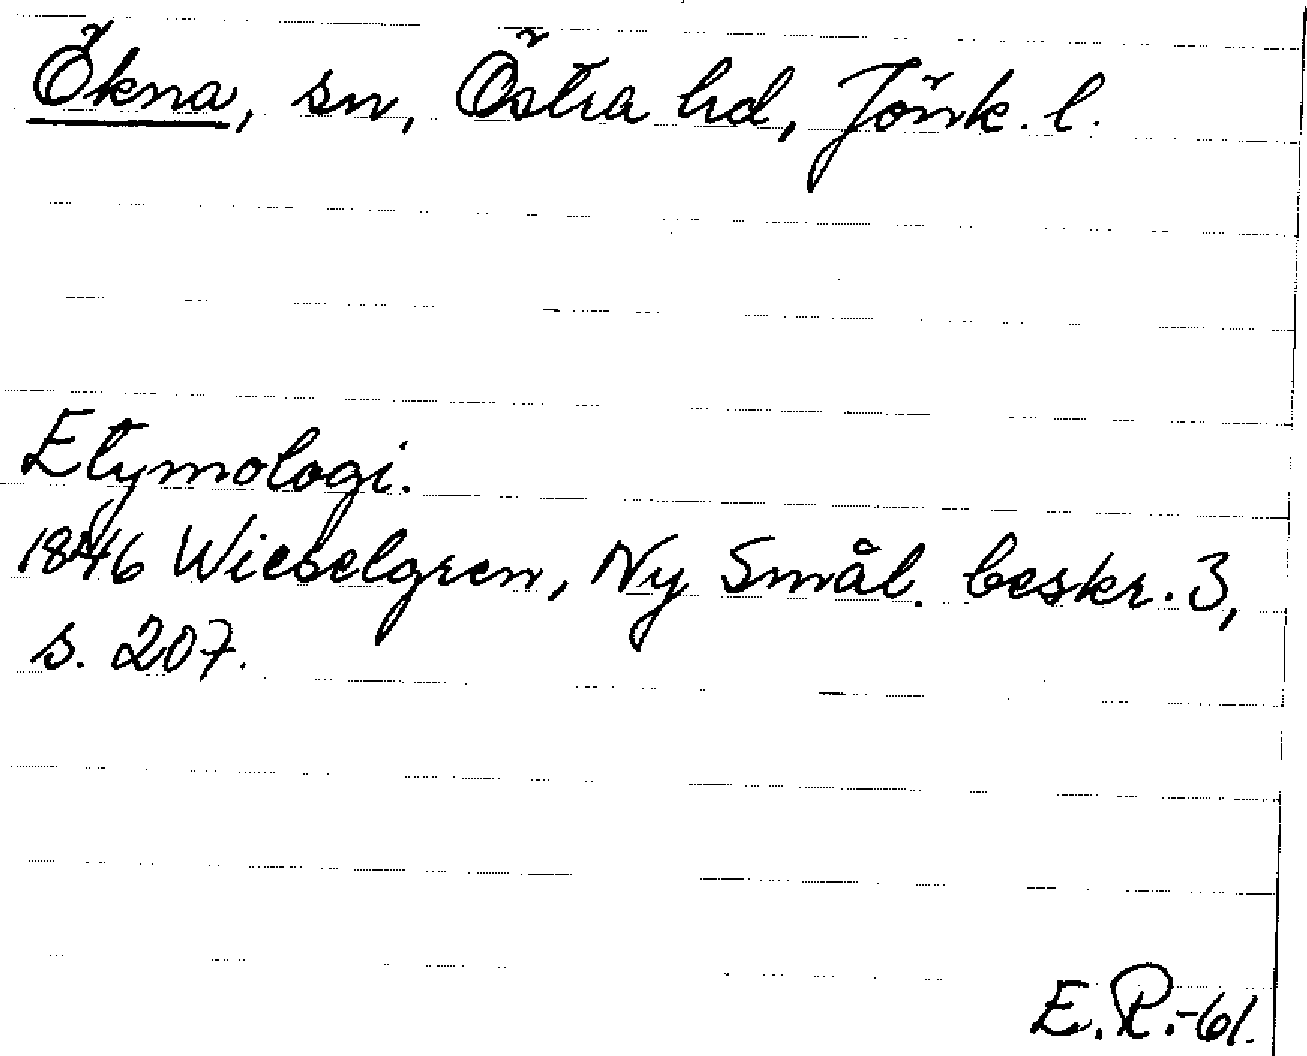 Ökna, sn, Östra hd, Jönk. l.
Etymologi.
1846 Wieselgren, Ny Smål. beskr. 3,
s. 207.
E.R.-61.